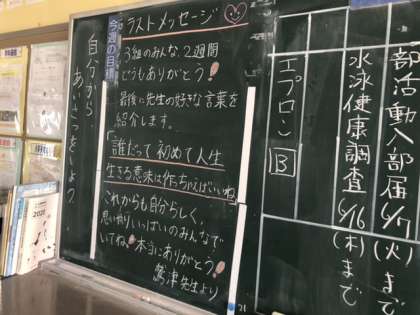 部活動入部届 6/7(火)まで
水泳健康調査 6/16(木)まで
エプロン B
ラストメッセージ
3組のみんな、2週間
どうもありがとう!
最後に先生の好きな言葉を
紹介します。
「誰だって初めて人生
生きる意味は作っちゃえばいいね」
これからも自分らしく、
思いやりいっぱいのみんなで
いてね。本当にありがとう!
鷲津先生より
今週の目標
自分から
あいさつをしよう